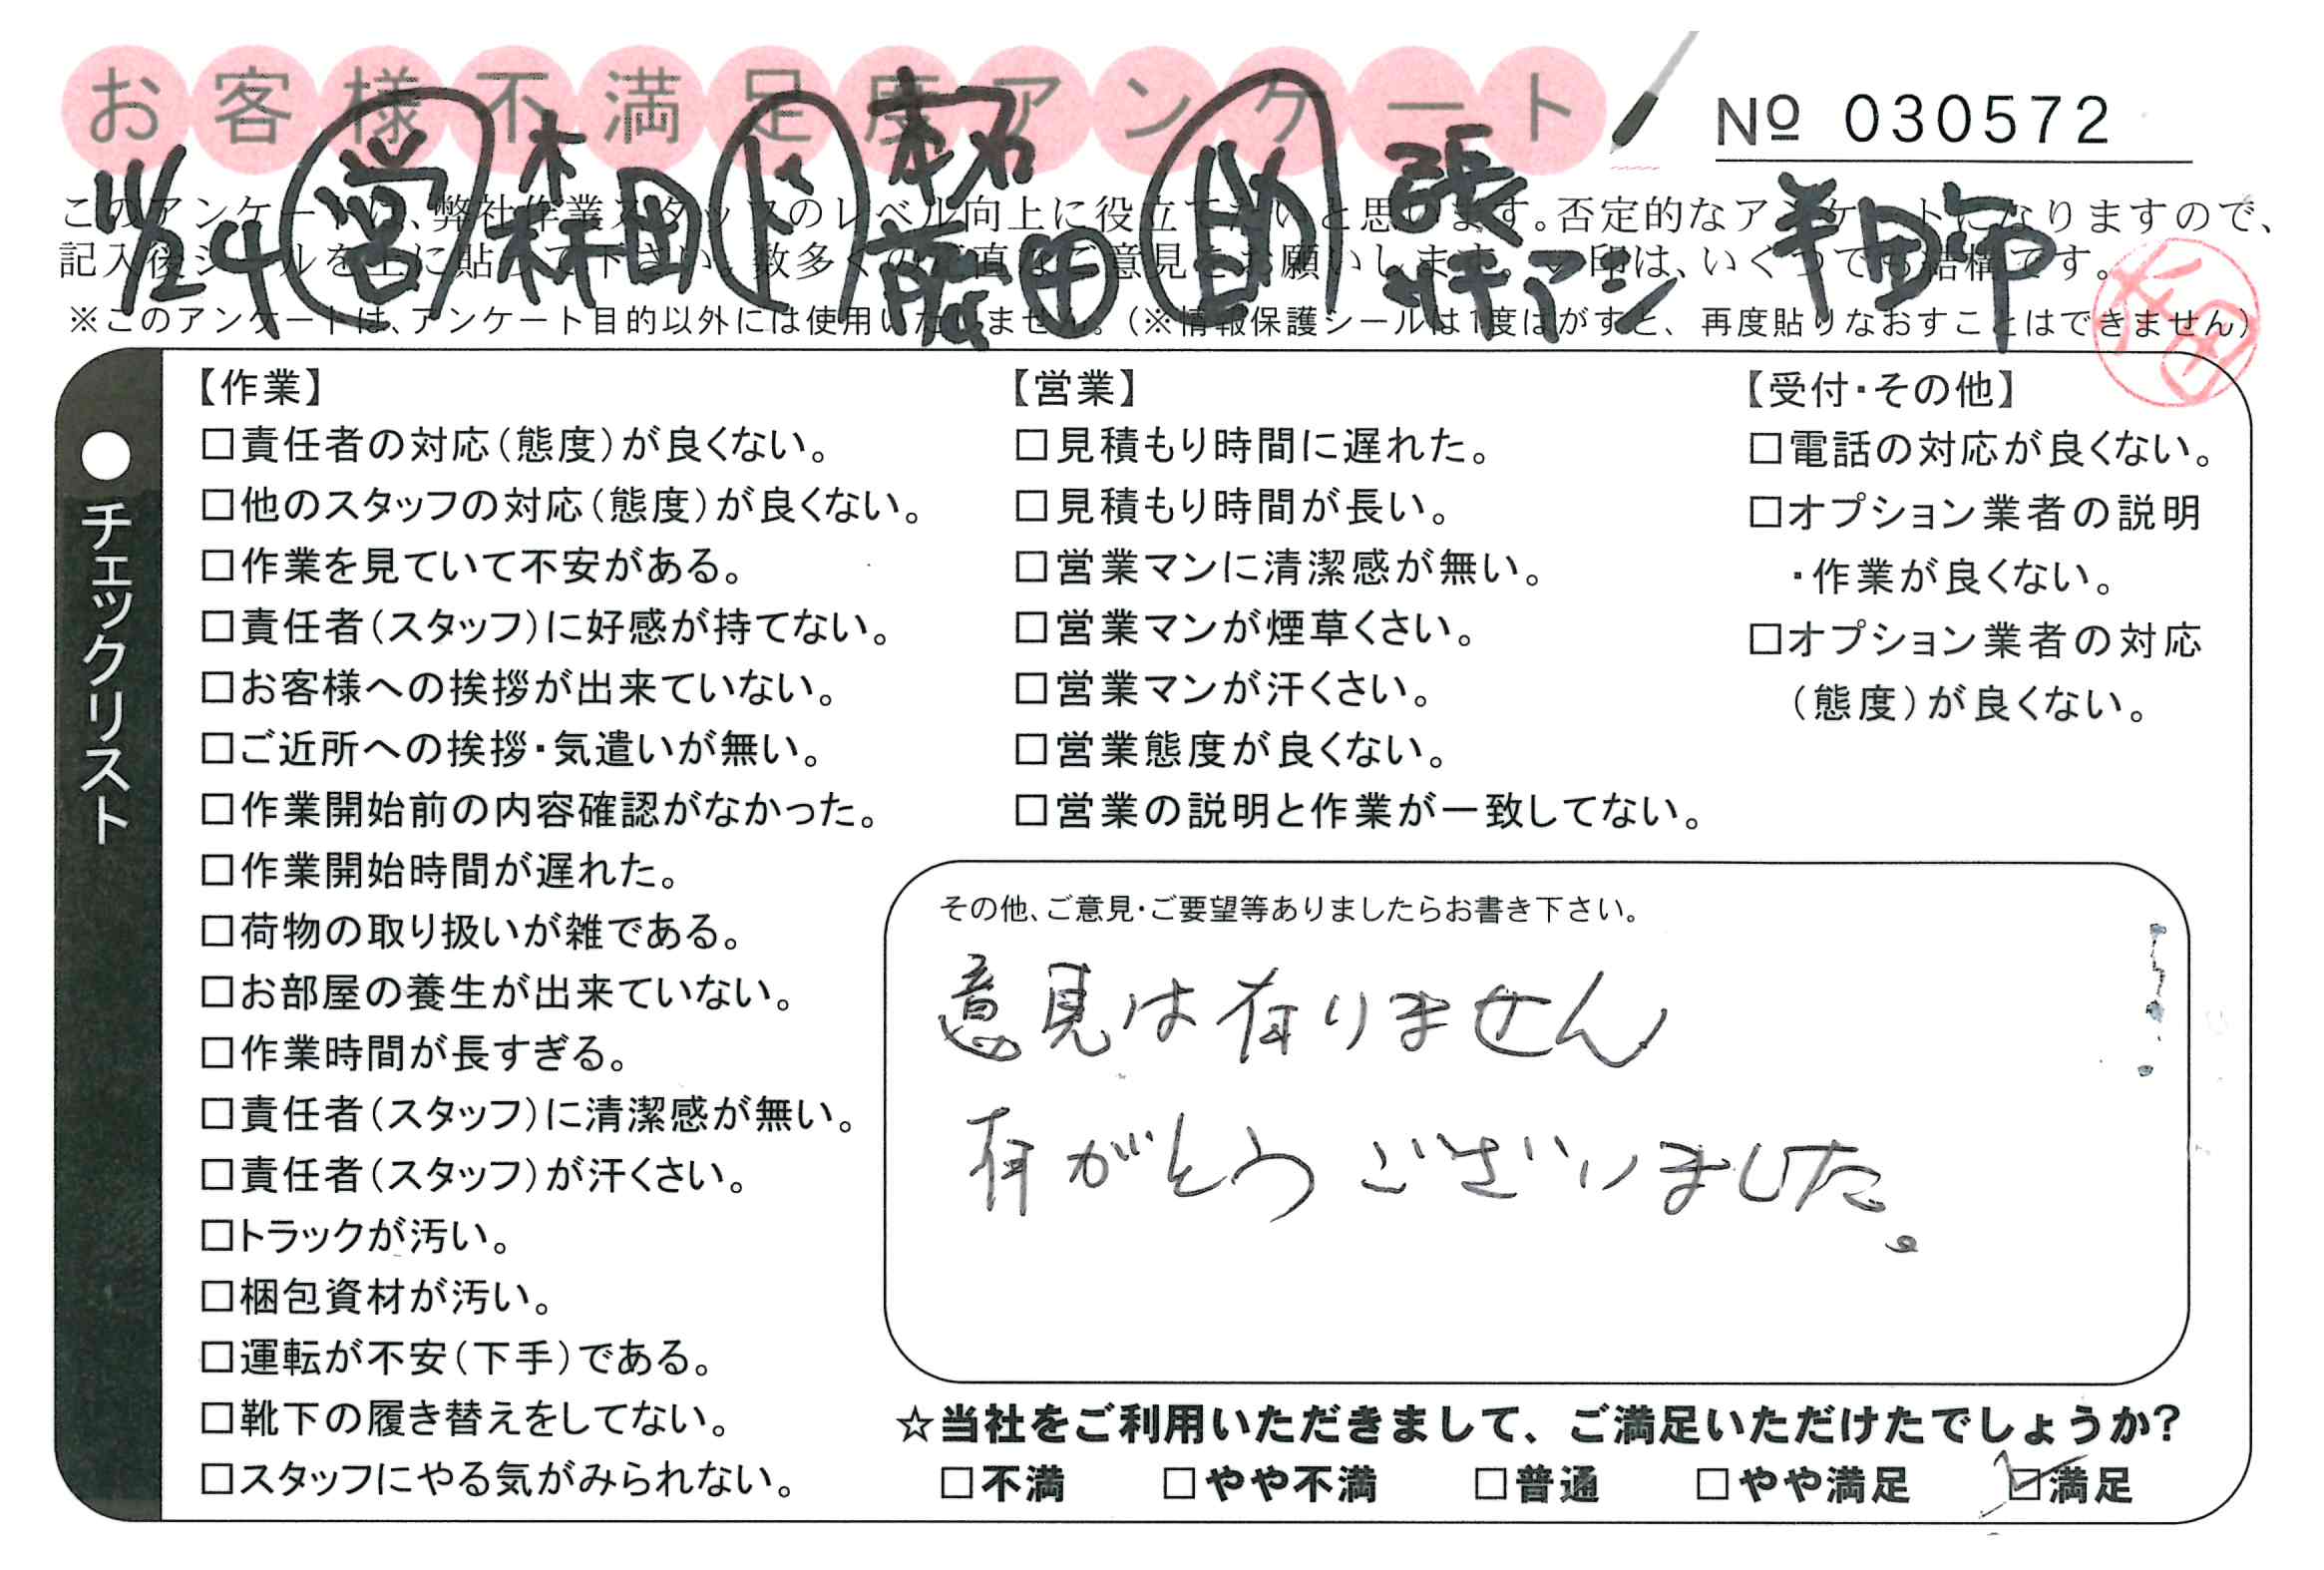 お客様不満足度アンケート
№ 030572
11/24 営 森田 ド 藤田 助
このアンケートは、弊社作業スタッフのレベル向上に役立てたいと思います。否定的なアンケートになりますので、
記入後シールを上に貼って下さい。数多くの正直なご意見をお願いします。レ印は、いくつでも結構です。
※このアンケートは、アンケート目的以外には使用いたしません。(※情報保護シールは1度はがすと、再度貼りなおすことはできません)
●チェックリスト
【作業】
□責任者の対応(態度)が良くない。
□他のスタッフの対応(態度)が良くない。
□作業を見ていて不安がある。
□責任者(スタッフ)に好感が持てない。
□お客様への挨拶が出来ていない。
□ご近所への挨拶・気遣いが無い。
□作業開始前の内容確認がなかった。
□作業開始時間が遅れた。
□荷物の取り扱いが雑である。
□お部屋の養生が出来ていない。
□作業時間が長すぎる。
□責任者(スタッフ)に清潔感が無い。
□責任者(スタッフ)が汗くさい。
□トラックが汚い。
□梱包資材が汚い。
□運転が不安(下手)である。
□靴下の履き替えをしてない。
□スタッフにやる気がみられない。
【営業】
□見積もり時間に遅れた。
□見積もり時間が長い。
□営業マンに清潔感が無い。
□営業マンが煙草くさい。
□営業マンが汗くさい。
□営業態度が良くない。
□営業の説明と作業が一致してない。
【受付・その他】
□電話の対応が良くない。
□オプション業者の説明
・作業が良くない。
□オプション業者の対応
(態度)が良くない。
その他、ご意見・ご要望等ありましたらお書き下さい。
意見は有りません
有がとうございました。
☆当社をご利用いただきまして、ご満足いただけたでしょうか?
□不満 □やや不満 □普通 □やや満足 ☑満足